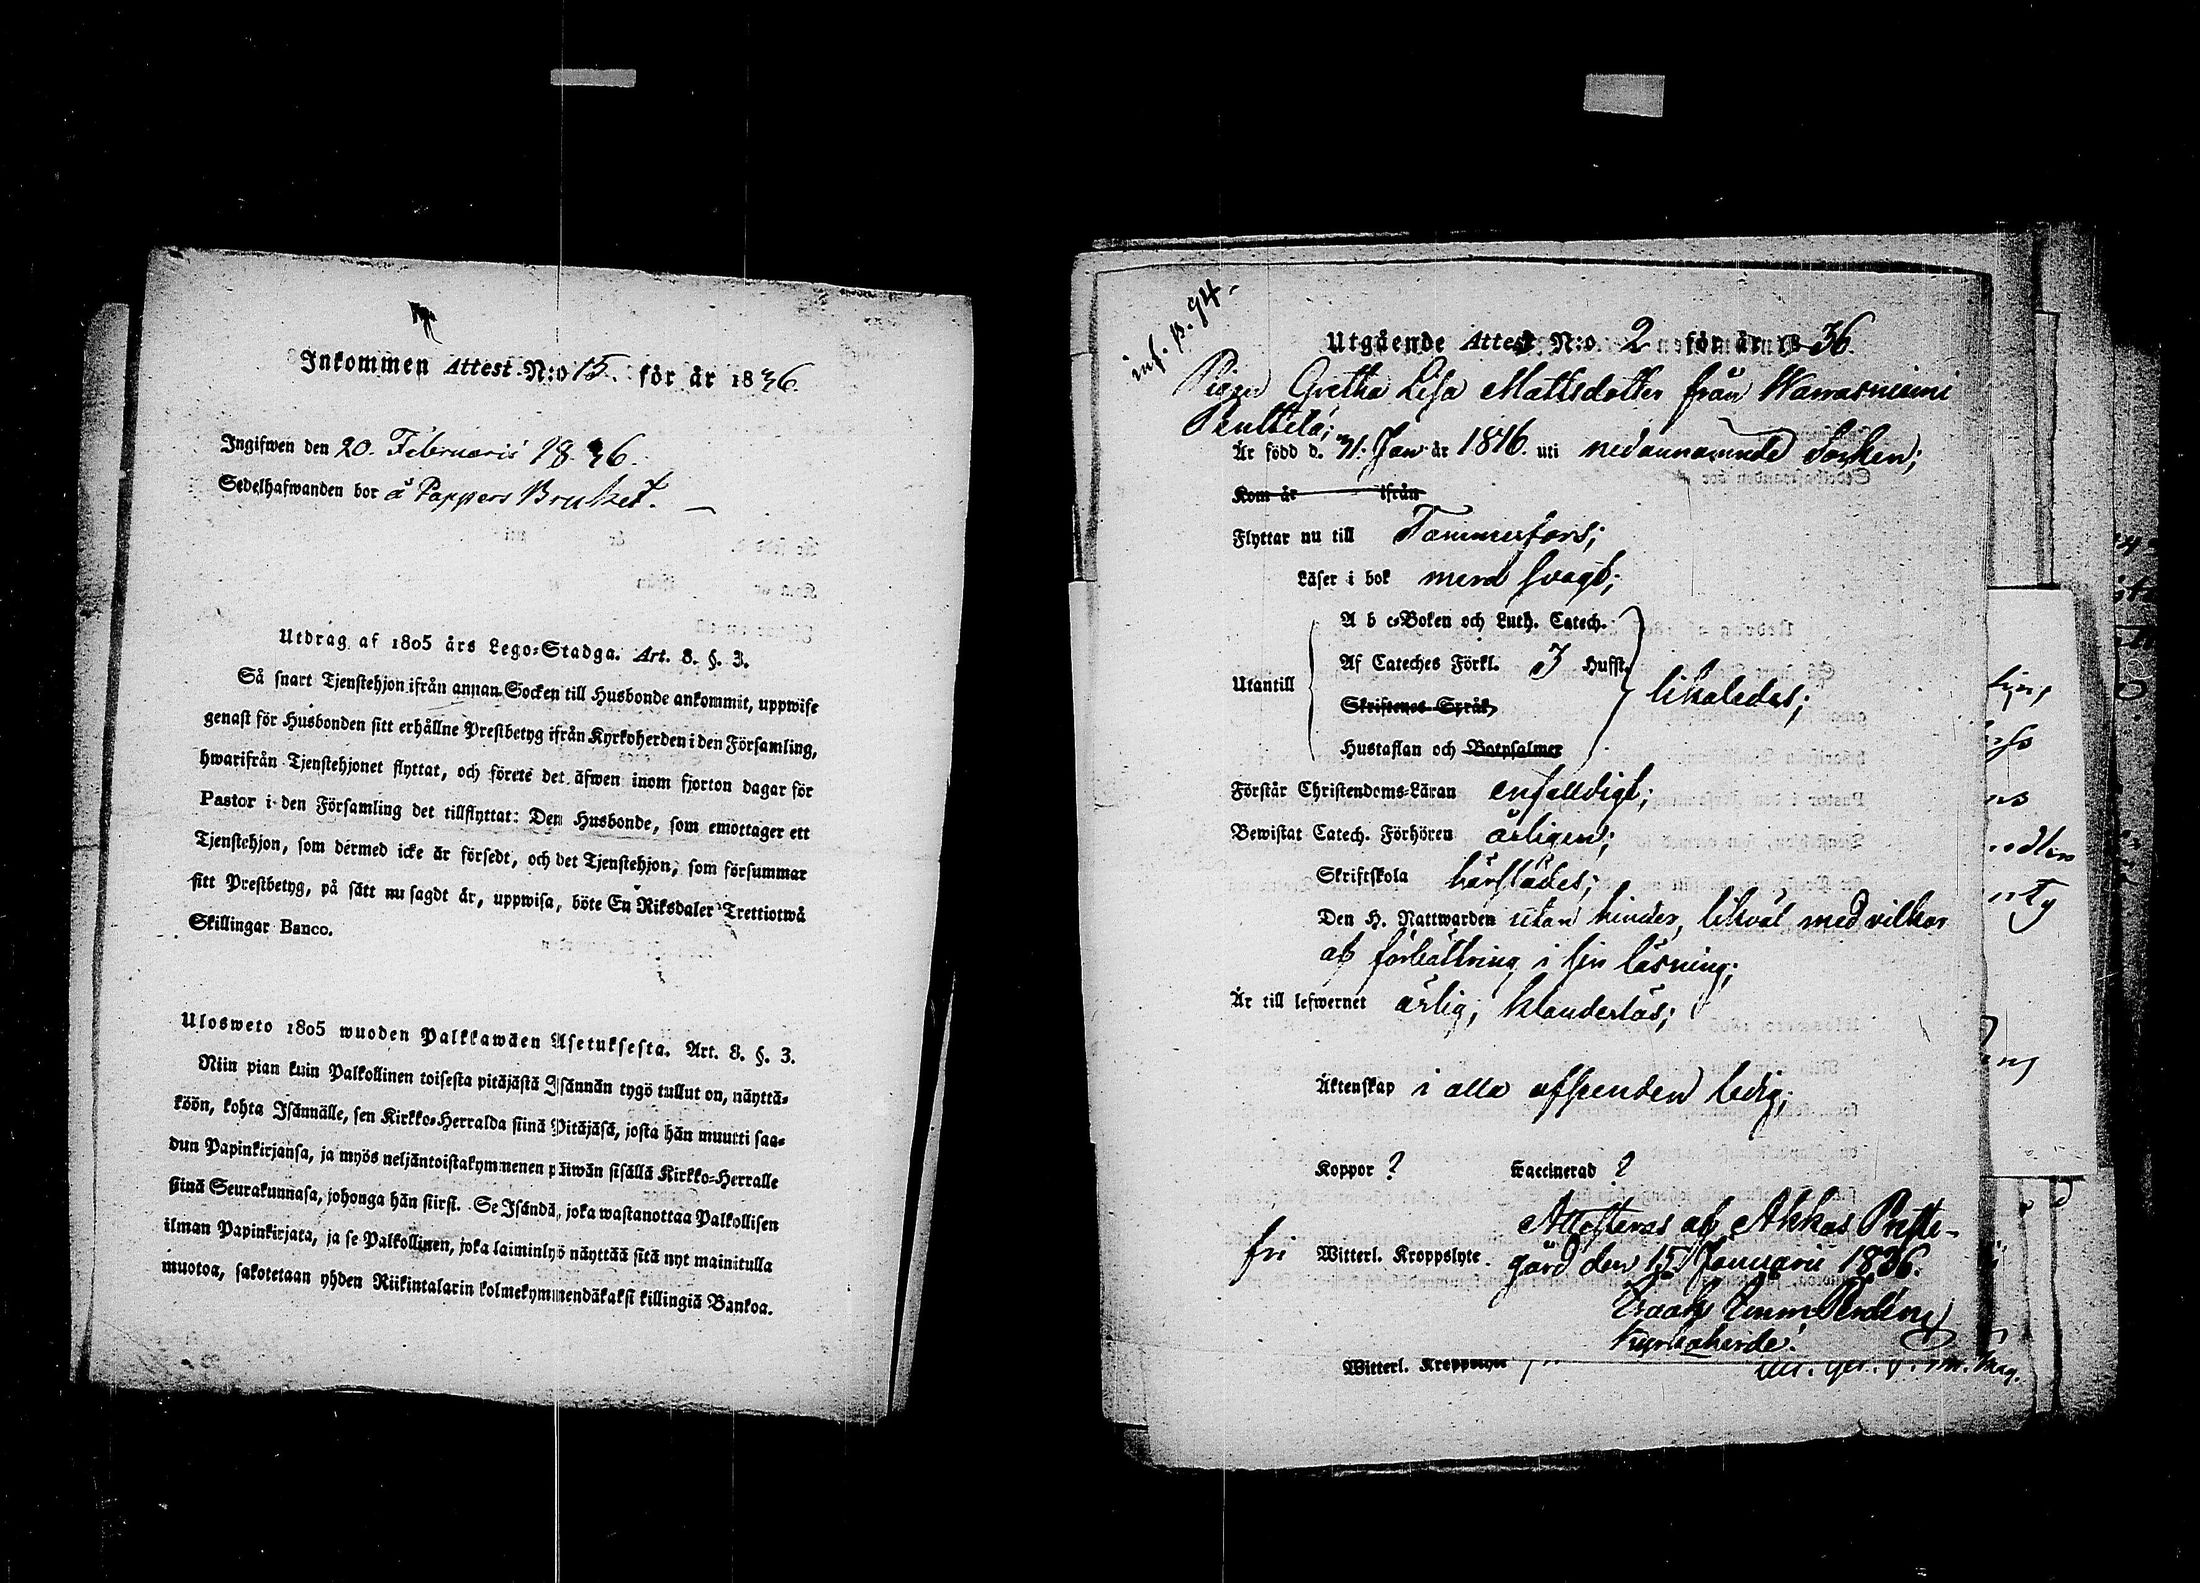 Inkommen Attest N:o 15. för år 1836.
Ingifwen den 20. Februarii 1836.
Sedelhafwanden bor å Pappers Bruket.
Utdrag af 1805 års Lego-Stadga. Art. 8. §. 3.
Så snart Tjenstehjon ifrån annan Socken till Husbonde ankommit, uppwise
genast för Husbonden sitt erhållne Prestbetyg ifrån Kyrkoherden i den Församling,
hwarifrån Tjenstehjonet flyttat, och förete det äfwen inom fjorton dagar för
Pastor i den Församling det tillflyttat: Den Husbonde, som emottager ett
Tjenstehjon, som dermed icke är försedt, och det Tjenstehjon, som försummar
sitt Prestbetyg, på sätt nu sagdt är, uppwisa, böte En Riksdaler Trettiotwå
Skillingar Banco.
Ulosweto 1805 wuoden Palkkawäen Asetuksesta. Art. 8. §. 3.
Niin pian kuin Palkollinen toisesta pitäjästä Isännän tygö tullut on, näyttä-
köön, kohta Isännälle, sen Kirkko-Herralda siinä Pitäjäsä, josta hän muutti saa-
dun Papinkirjansa, ja myös neljäntoistakymmenen päiwän sisällä Kirkko-Herralle
siinä Seurakunnasa, johonga hän siirsi. Se Isändä, joka wastanottaa Palkollisen
ilman Papinkirjata, ja se Palkollinen, joka laiminlyö näyttää sitä nyt mainitulla
muotoa, sakotetaan yhden Riikintalarin kolmekymmendäkaksi killingiä Bankoa.
inf. p. 94.
Utgående Attest N:o 2 för år 1836.
Pigan Gretha Lisa Mattsdotter från Warrasniemi
Penttilä;
Är född d. 21. Jan. år 1816. uti nedannämnde Socken;
Kom år ifrån
Flyttar nu till Tammerfors;
Läser i bok med svagt;
A b c-Boken och Luth. Catech.
Af Cateches Förkl. 3 Hufst.
Utantill likaledes;
Skriftenes Språk
Hustaflan och Botpsalmer
Förstår Christendoms-Läran enfalldigt;
Bewistat Catech. Förhören årligen;
Skriftskola härstädes;
Den H. Nattwarden utan hinder, likväl med vilkor
af förbättring i sin läsning;
Är till lefwernet ärlig, klanderlös;
Äktenskap i alla afseenden ledig;
Koppor ? Vaccinerad ?
Attesteras af Akkas Prestegård den 15 Januarii 1836.
fri Witterl. Kroppslyte.
Kyrkoherde.
Witterl. Kroppslyte